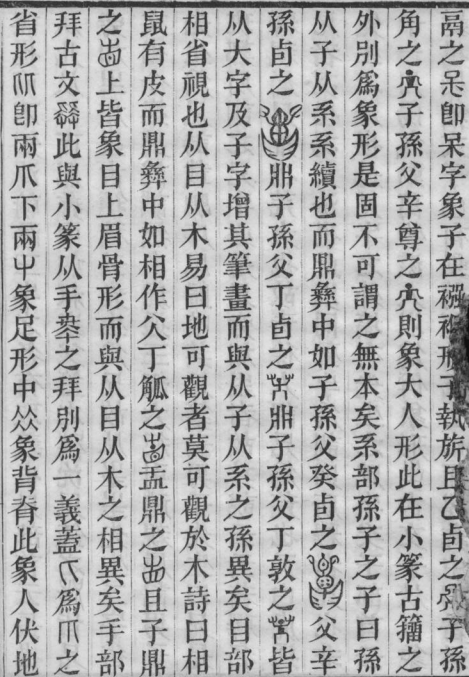 鬲之即呆字象子在襁褓形子執旂且乙卣之子孫
角之子孫父辛尊之則象大人形此在小篆古籀之
外別爲象形是固不可謂之無本矣系部孫子之子曰孫
从子从系系續也而鼎彝中如子孫父癸卣之父辛
孫卣之鼎子孫父丁卣之鼎子孫父丁敦之皆
从大字及子字增其筆畫而與从子从系之孫異矣目部
相省視也从目从木易曰地可觀者莫可觀於木詩曰相
鼠有皮而鼎彝中如相作父丁觚之盉鼎之且子鼎
之上皆象目上眉骨形而與从目从木之相異矣手部
拜古文此與小篆从手之拜別爲一義蓋爲爪之
省形即兩爪下兩屮象足形中象背脊此象人伏地